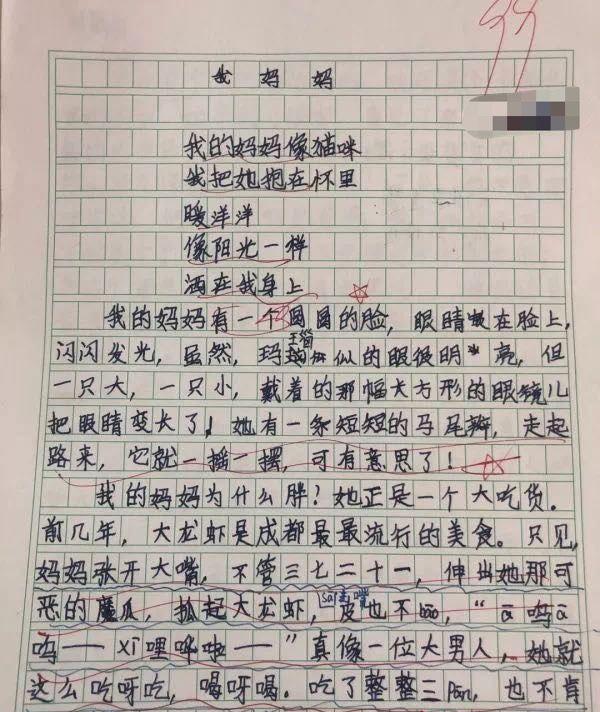 99
我妈妈
我的妈妈像猫咪
我把她抱在怀里
暖洋洋
像阳光一样
洒在我身上
我的妈妈有一个圆圆的脸，眼睛嵌在脸上，
闪闪发光，虽然，玛瑙似的眼很明亮，但
一只大，一只小，戴着的那幅大方形的眼镜儿
把眼睛变长了！她有一条短短的马尾辫，走起
路来，它就一摇一摆，可有意思了！
我的妈妈为什么胖？她正是一个大吃货。
前几年，大龙虾是成都最最流行的美食。只见，
妈妈张开大嘴，不管三七二十一，伸出她那可
恶的魔爪，抓起大龙虾，皮也不bāo，“ā呜ā
呜——xī哩哗啦——”真像一位大男人，她就
这么吃呀吃，喝呀喝。吃了整整三pán，也不肯